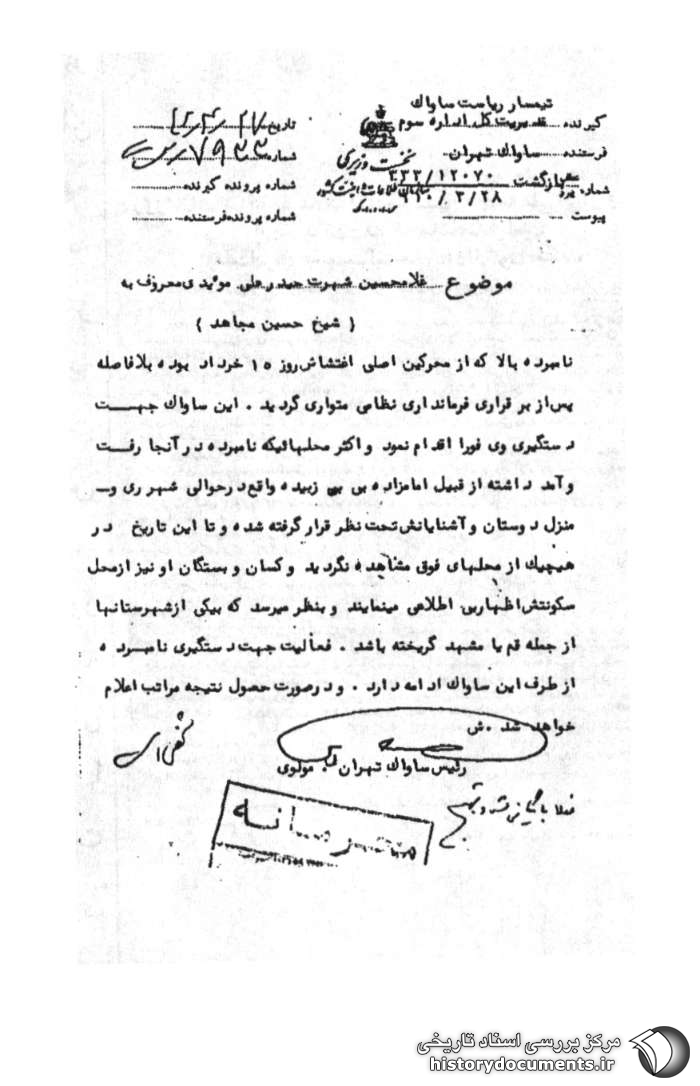 تیمسار ریاست ساواک
گیرنده مدیریت کل اداره سوم
فرستنده ساواک تهران
بازگشت ۳۳۳/۱۲۰۷۰
شماره
۹۱۰/۳/۲۸
پیوست
نخست وزیری
سازمان اطلاعات و امنیت کشور
تاریخ
شماره
شماره پرونده گیرنده
شماره پرونده فرستنده
موضوع غلامحسین شهرت حیدرعلی موئیدی معروف به
( شیخ حسین مجاهد )
نامبرده بالا که از محرکین اصلی اغتشاش روز ۱۵ خرداد بوده بلافاصله
پس از بر قراری فرمانداری نظامی متواری گردید . این ساواک جهت
دستگیری وی فورا اقدام نمود و اکثر محلهائیکه نامبرده در آنجا رفت
و آمد داشته از قبیل امامزاده بی بی زبیده واقع در حوالی شهر ری و
منزل دوستان و آشنایانش تحت نظر قرار گرفته شده و تا این تاریخ در
هیچیک از محلهای فوق مشاهده نگردید و کسان و بستگان او نیز از محل
سکونتش اظهار بی اطلاعی مینمایند و بنظر میرسد که بیکی از شهرستانها
از جمله قم یا مشهد گریخته باشد . فعالیت جهت دستگیری نامبرده
از طرف این ساواک ادامه دارد . و در صورت حصول نتیجه مراتب اعلام
خواهد شد .ش
رئیس ساواک تهران مولوی
محرمانه
مرکز بررسی اسناد تاریخی
historydocuments.ir